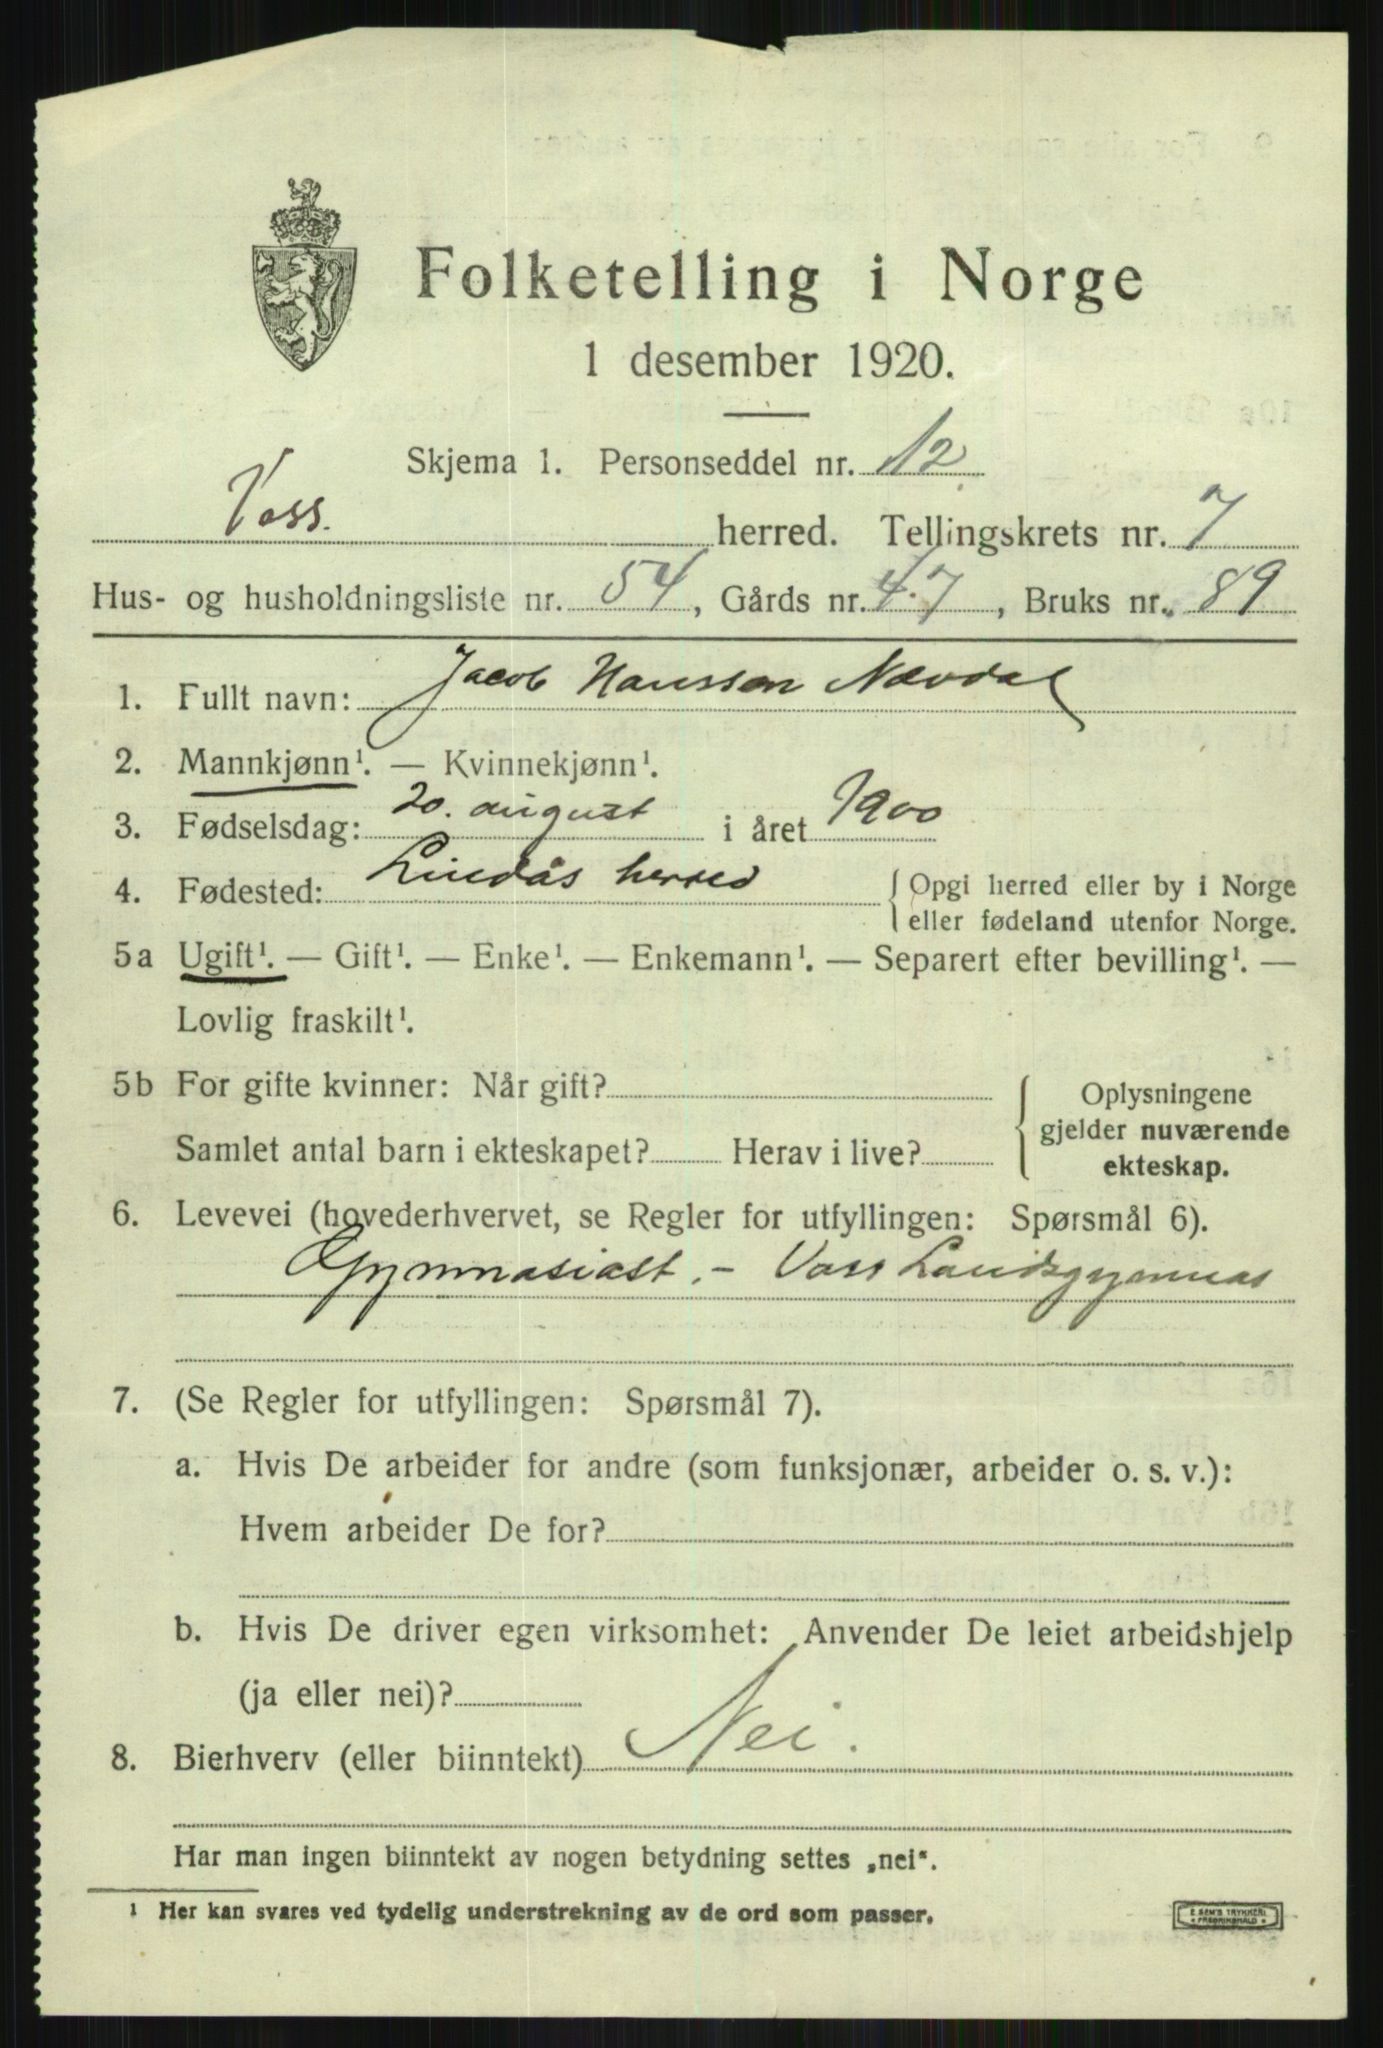 Folketelling i Norge
1 desember 1920.
Skjema 1. Personseddel nr. 12
Voss. herred. Tellingskrets nr. 7
Hus- og husholdningsliste nr. 54, Gårds nr. 47, Bruks nr. 89
1. Fullt navn: Jacob Hanssen Nævdal
2. Mannkjønn¹. — Kvinnekjønn¹.
3. Fødselsdag: 20. august i året 1900
4. Fødested: Lindås herred { Opgi herred eller by i Norge
eller fødeland utenfor Norge.
5a Ugift¹. — Gift¹. — Enke¹. — Enkemann¹. — Separert efter bevilling¹. —
Lovlig fraskilt¹.
5b For gifte kvinner: Når gift? { Oplysningene
gjelder nuværende
Samlet antal barn i ekteskapet? Herav i live? ekteskap.
6. Levevei (hovederhvervet, se Regler for utfyllingen: Spørsmål 6).
Gymnasiast. – Voss Landsgymnas
7. (Se Regler for utfyllingen: Spørsmål 7).
a. Hvis De arbeider for andre (som funksjonær, arbeider o. s. v.):
Hvem arbeider De for?
b. Hvis De driver egen virksomhet: Anvender De leiet arbeidshjelp
(ja eller nei)?
8. Bierhverv (eller biinntekt) Nei.
Har man ingen biinntekt av nogen betydning settes „nei“.
¹ Her kan svares ved tydelig understrekning av de ord som passer.
E. SEM'S TRYKKERI
FREDRIKSHALD